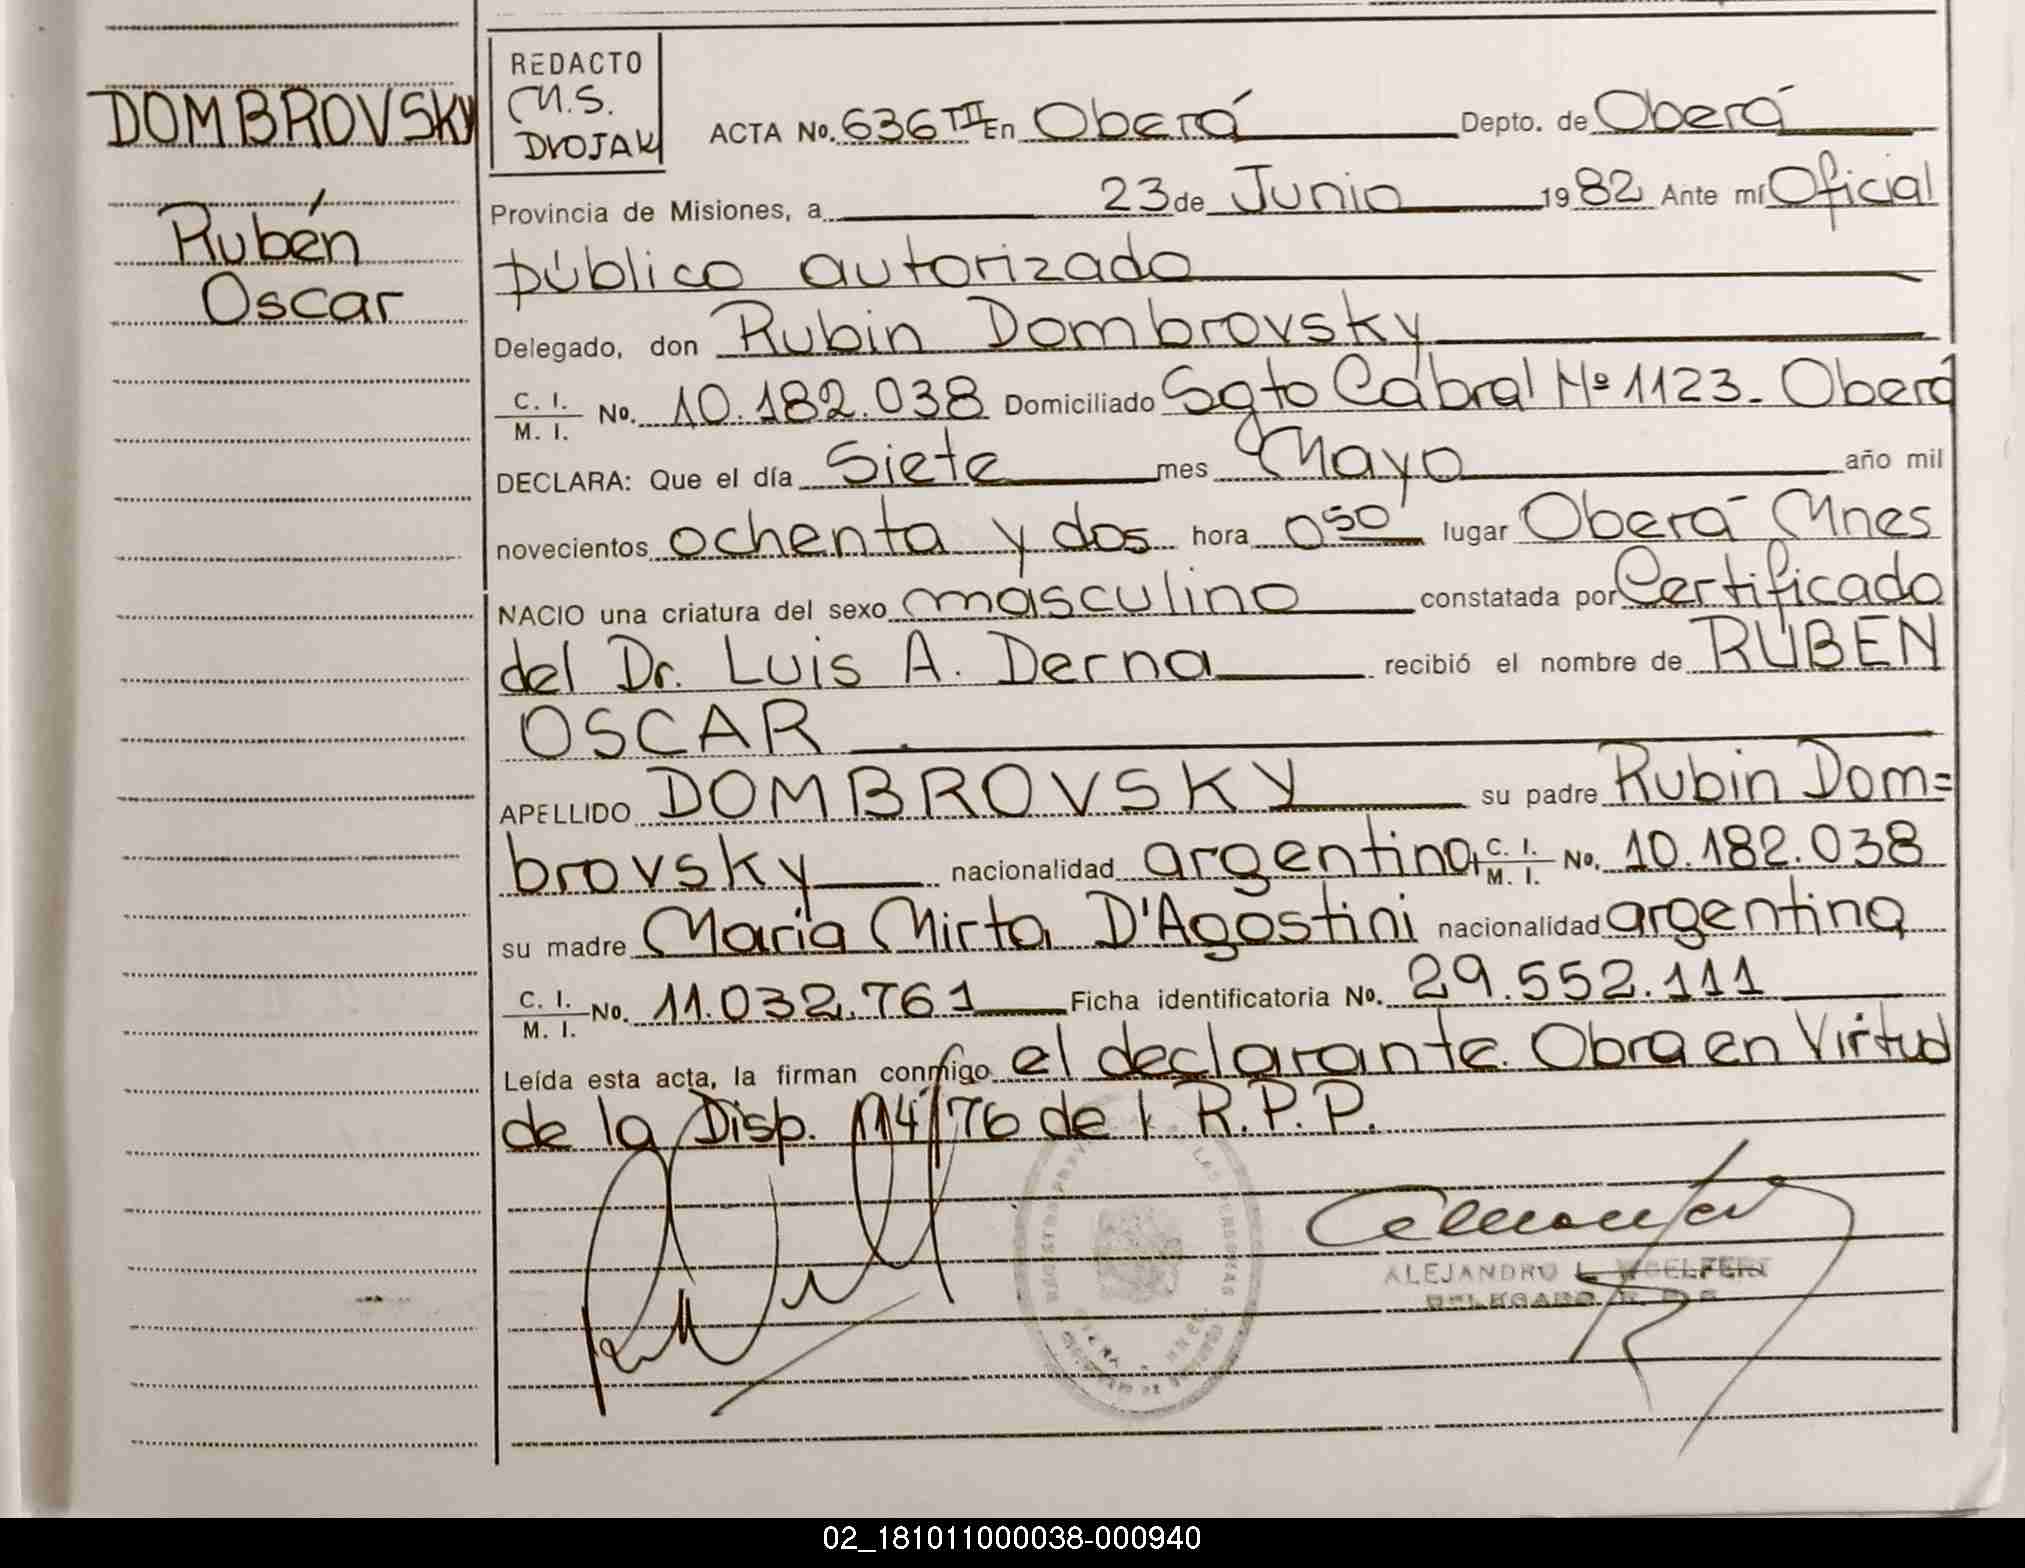 DOMBROVSKY
Rubén
Oscar
REDACTO
M.S.
DVOJAK
ACTA No. 636 TII En Oberá Depto. de Oberá
Provincia de Misiones, a 23 de Junio 1982 Ante mí Oficial
público autorizado
Delegado, don Rubin Dombrovsky
C. I. / M. I. No. 10.182.038 Domiciliado Sgto Cabral Nº 1123. Oberá
DECLARA: Que el día Siete mes Mayo año mil
novecientos ochenta y dos hora 0 50 lugar Oberá Mnes
NACIO una criatura del sexo masculino constatada por Certificado
del Dr. Luis A. Derna recibió el nombre de RUBEN
OSCAR
APELLIDO DOMBROVSKY su padre Rubin Dom=
brovsky nacionalidad argentina C. I. / M. I. No. 10.182.038
su madre María Mirta D'Agostini nacionalidad argentina
C. I. / M. I. No. 11.032.761 Ficha identificatoria No. 29.552.111
Leída esta acta, la firman conmigo el declarante. Obra en Virtud
de la Disp. 114/76 de l R.P.P.
ALEJANDRO L. WOELFERT
DELEGADO R. P. P.
02_181011000038-000940